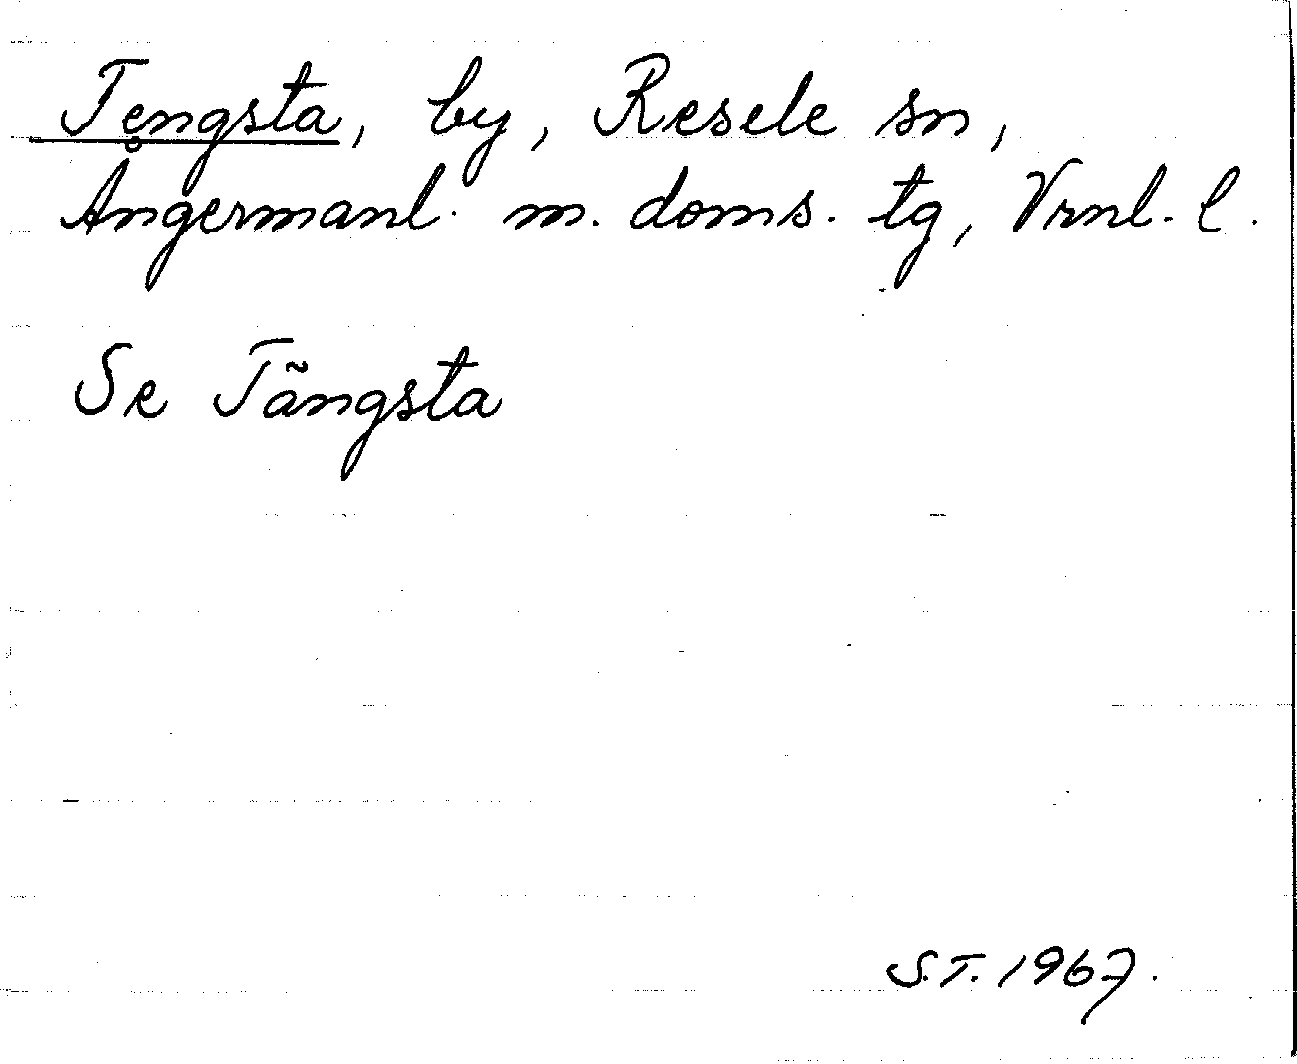 Tengsta, by, Resele sn,
Ångermanl. m. doms. tg, Vrnl. l.
Se Tängsta
S.T. 1967.